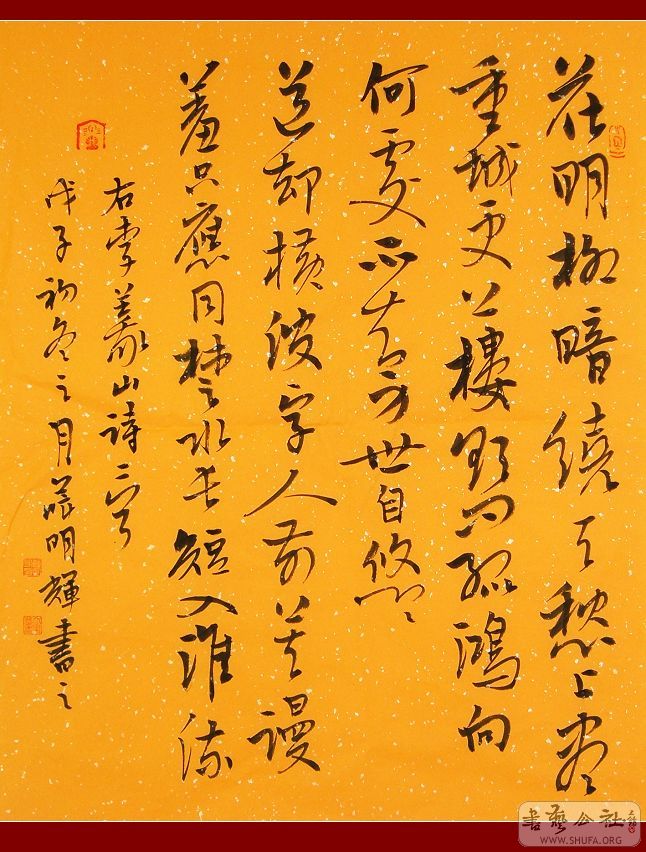 花明柳暗繞天愁上盡
重城更上樓欲問孤鴻向
何處不知身世自悠悠
道却橫波字人前莫謾
羞只應同楚水長短入淮流
右李義山詩二首
戊子初冬之月明輝書之
書藝公社
WWW.SHUFA.ORG